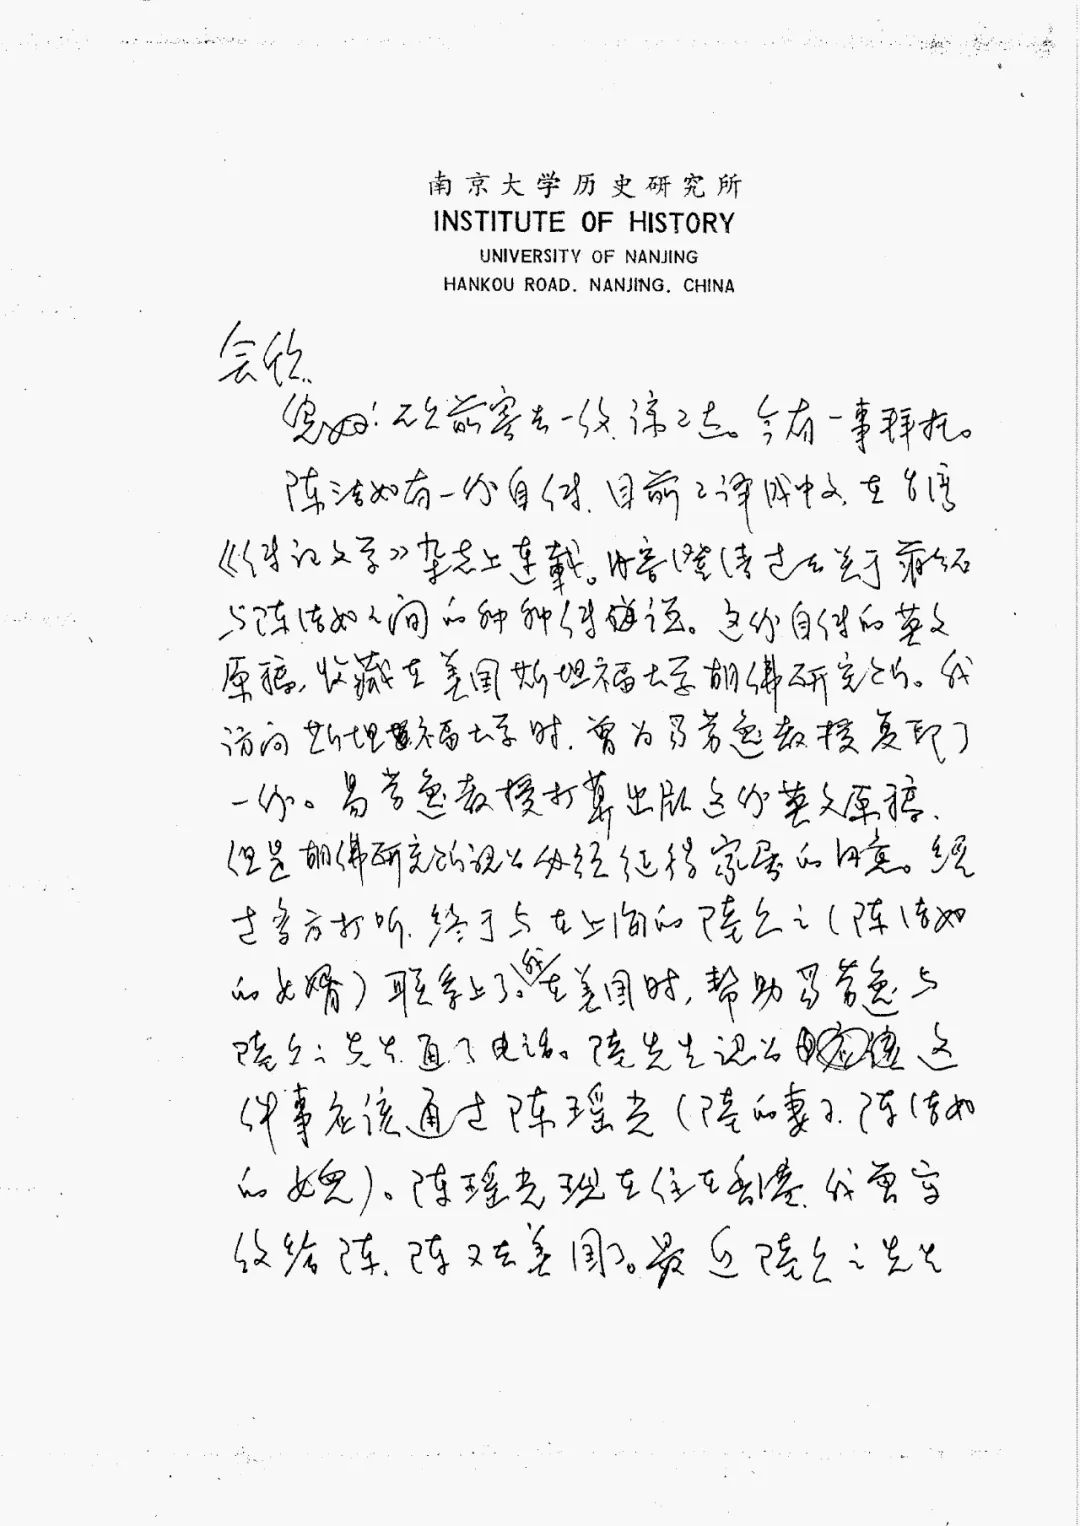 南京大学历史研究所
INSTITUTE OF HISTORY
UNIVERSITY OF NANJING
HANKOU ROAD. NANJING. CHINA
会欣:
您好！不久前寄去一信，谅已达。今有一事拜托。
陈洁如有一份自传，目前已译成中文，在台湾
《传记文学》杂志上连载。内容澄清过去关于蒋介石
与陈洁如之间的种种传说。这份自传的英文
原稿，收藏在美国斯坦福大学胡佛研究所。我
访问斯坦福大学时，曾为易劳逸教授复印了
一份。易劳逸教授打算出版这份英文原稿，
但是胡佛研究所认为必须征得家属的同意。经
过多方打听，终于与在上海的陆久之（陈洁如
的女婿）联系上了。我在美国时，帮助易劳逸与
陆久之先生通了电话。陆先生认为这
件事应该通过陈瑶光（陆的妻子，陈洁如
的女儿）。陈瑶光现在住在香港，我曾写
信给陈，陈又去美国了。最近陆久之先生